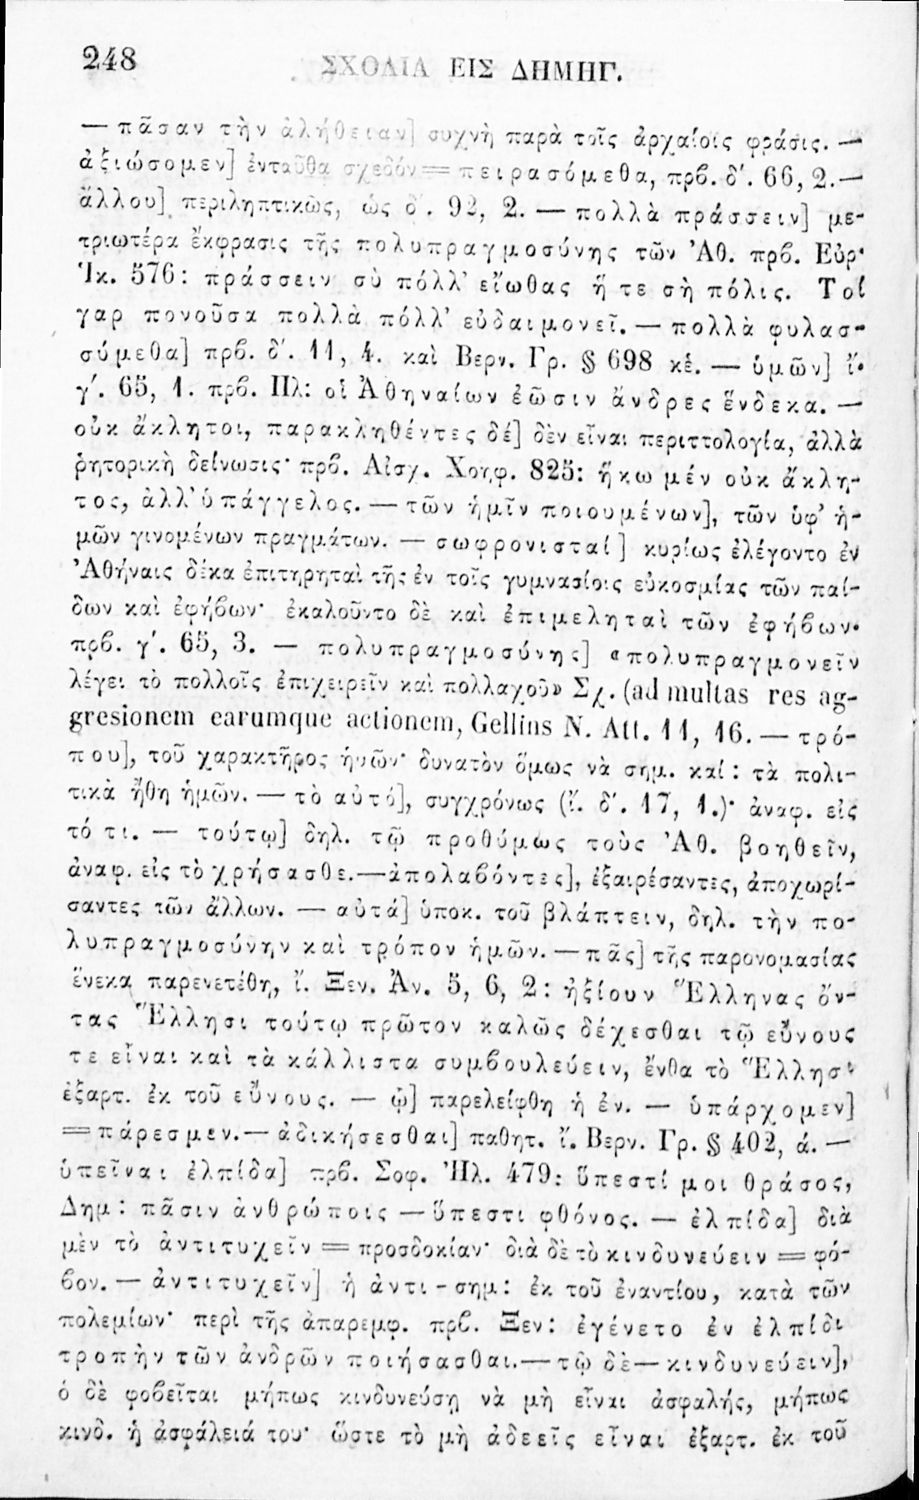 248
ΣΧΟΛΙΑ ΕΙΣ ΔΗΜΗΓ.
— πᾶσαν τὴν ἀλήθειαν] συχνὴ παρὰ τοῖς ἀρχαίοις φράσις. —
ἀξιώσομεν] ἐνταῦθα σχεδὸν = πειρασόμεθα, πρβ. δ'. 66, 2.—
ἄλλου] περιληπτικῶς, ὡς δ'. 92, 2. — πολλὰ πράσσειν] με-
τριωτέρα ἔκφρασις τῆς πολυπραγμοσύνης τῶν Ἀθ. πρβ. Εὐρ·
Ἱκ. 576: πράσσειν σὺ πόλλ' εἴωθας ἥ τε σὴ πόλις. Τοι
γαρ πονοῦσα πολλὰ πόλλ' εὐδαιμονεῖ. — πολλὰ φυλασ-
σόμεθα] πρβ. δ'. 11, 4. καὶ Βερν. Γρ. § 698 κἑ. — ὑμῶν] ἴ·
γ'. 65, 1. πρβ. Πλ: οἱ Ἀθηναίων ἐῶσιν ἄνδρες ἕνδεκα. —
οὐκ ἄκλητοι, παρακληθέντες δέ] δὲν εἶναι περιττολογία, ἀλλὰ
ῥητορικὴ δείνωσις· πρβ. Αἰσχ. Χοηφ. 825: ἥκω μέν οὐκ ἄκλη-
τος, ἀλλ' ὑπάγγελος. — τῶν ἡμῖν ποιουμένων], τῶν ὑφ' ἡ-
μῶν γινομένων πραγμάτων. — σωφρονισταί] κυρίως ἐλέγοντο ἐν
Ἀθήναις δέκα ἐπιτηρηταὶ τῆς ἐν τοῖς γυμνασίοις εὐκοσμίας τῶν παί-
δων καὶ ἐφήβων· ἐκαλοῦντο δὲ καὶ ἐπιμεληταὶ τῶν ἐφήβων·
πρβ. γ'. 65, 3. — πολυπραγμοσύνης] «πολυπραγμονεῖν
λέγει τὸ πολλοῖς ἐπιχειρεῖν καὶ πολλαχοῦ» Σχ. (ad multas res ag-
gresionem earumque actionem, Gellins N. Att. 11, 16. — τρό-
που], τοῦ χαρακτῆρος ἡμῶν· δυνατὸν ὅμως νὰ σημ. καί: τὰ πολι-
τικὰ ἤθη ἡμῶν. — τὸ αὐτό], συγχρόνως (ἴ. δ'. 17, 1.)· ἀναφ. εἰς
τό τι. — τούτῳ] δηλ. τῷ προθύμως τοὺς Ἀθ. βοηθεῖν,
ἀναφ. εἰς τὸ χρήσασθε.—ἀπολαβόντες], ἐξαιρέσαντες, ἀποχωρί-
σαντες τῶν ἄλλων. — αὐτά] ὑποκ. τοῦ βλάπτειν, δηλ. τὴν πο-
λυπραγμοσύνην καὶ τρόπον ἡμῶν. — πᾶς] τῆς παρονομασίας
ἕνεκα παρενετέθη, ἴ. Ξεν. Ἀν. 5, 6, 2: ἠξίουν Ἕλληνας ὄν-
τας Ἕλλησι τούτῳ πρῶτον καλῶς δέχεσθαι τῷ εὔνους
τε εἶναι καὶ τὰ κάλλιστα συμβουλεύειν, ἔνθα τὸ Ἕλλησι
ἐξαρτ. ἐκ τοῦ εὔνους. — ᾧ] παρελείφθη ἡ ἐν. — ὑπάρχομεν]
= πάρεσμεν.— ἀδικήσεσθαι] παθητ. ἴ. Βερν. Γρ. § 402, ά. —
ὑπεῖναι ἐλπίδα] πρβ. Σοφ. Ἠλ. 479: ὕπεστί μοι θράσος,
Δημ: πᾶσιν ἀνθρώποις — ὕπεστι φθόνος. — ἐλπίδα] διὰ
μὲν τὸ ἀντιτυχεῖν = προσδοκίαν· διὰ δὲ τὸ κινδυνεύειν = φό-
βον. — ἀντιτυχεῖν] ἡ ἀντι - σημ: ἐκ τοῦ ἐναντίου, κατὰ τῶν
πολεμίων· περὶ τῆς ἀπαρεμφ. πρβ. Ξεν: ἐγένετο ἐν ἐλπίδι
τροπὴν τῶν ἀνδρῶν ποιήσασθαι.—τῷ δὲ—κινδυνεύειν],
ὁ δὲ φοβεῖται μήπως κινδυνεύσῃ νὰ μὴ εἶναι ἀσφαλής, μήπως
κινδ. ἡ ἀσφάλειά του· ὥστε τὸ μὴ ἀδεεῖς εἶναι ἐξαρτ. ἐκ τοῦ